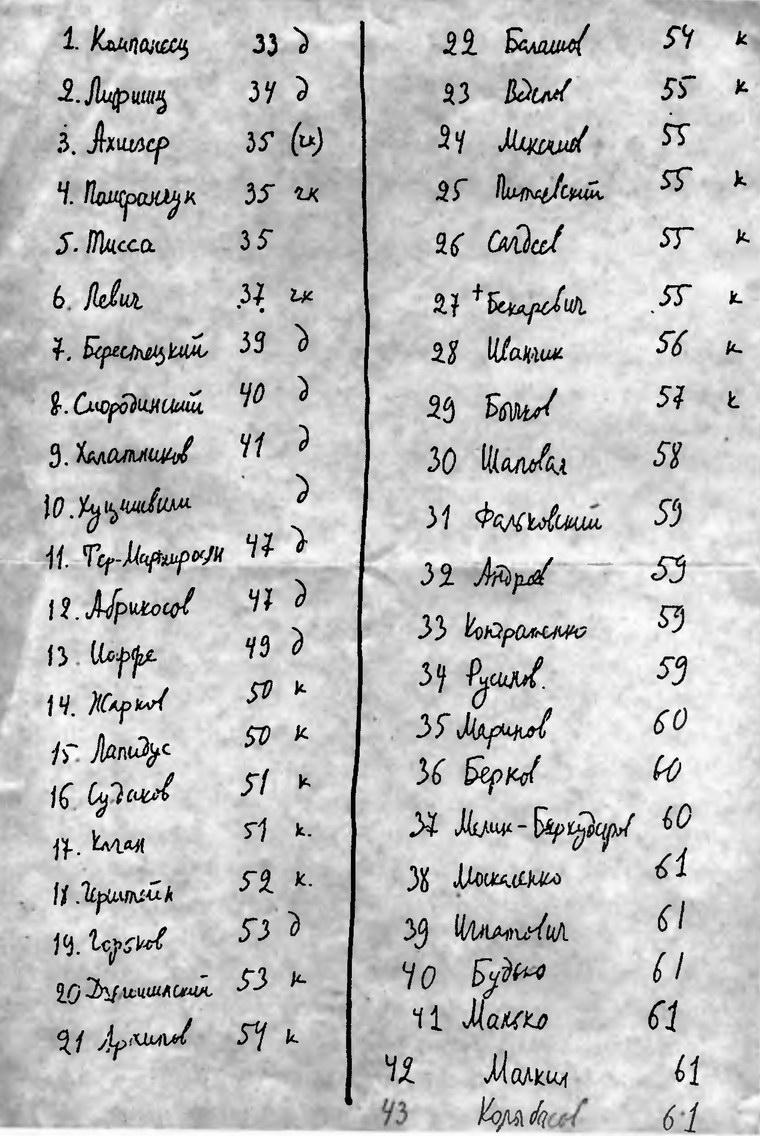 1. Компанеец 33 д
2. Лифшиц 34 д
3. Ахиезер 35 (чк)
4. Померанчук 35 чк
5. Тисса 35
6. Левич 37 чк
7. Берестецкий 39 д
8. Смородинский 40 д
9. Халатников 41 д
10. Хуцишвили д
11. Тер-Мартиросян 47 д
12. Абрикосов 47 д
13 Иоффе 49 д
14. Жарков 50 к
15. Лапидус 50 к
16 Судаков 51 к
17. Каган 51 к.
18. Герштейн 52 к.
19. Горьков 53 д
20 Дзялошинский 53 к
21 Архипов 54 к
22 Балашов 54 к
23 Веденов 55 к
24 Максимов 55
25 Питаевский 55 к
26 Сагдеев 55 к
27 + Бекаревич 55 к
28 Иванчик 56 к
29 Бычков 57 к
30 Шаповал 58
31 Фальковский 59
32 Андреев 59
33 Кондратенко 59
34 Русинов. 59
35 Маринов 60
36 Берков 60
37 Мелик-Бархударов 60
38 Москаленко 61
39 Игнатович 61
40 Будько 61
41 Манько 61
42 Малкин 61
43 61